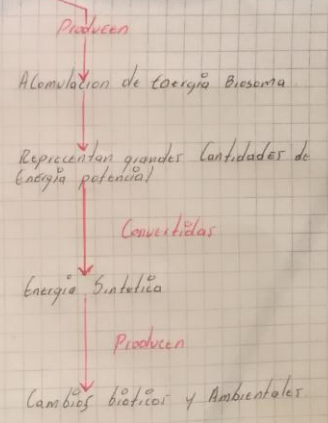 Producen
Acomulacion de Energia Biosoma
Reprecentan grandes Cantidades de
Energia potencial
Convertidas
Energia Sintetica
Producen
Cambios bioticos y Ambientales.